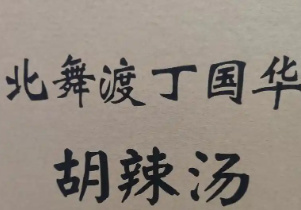 北舞渡丁国华
胡辣汤